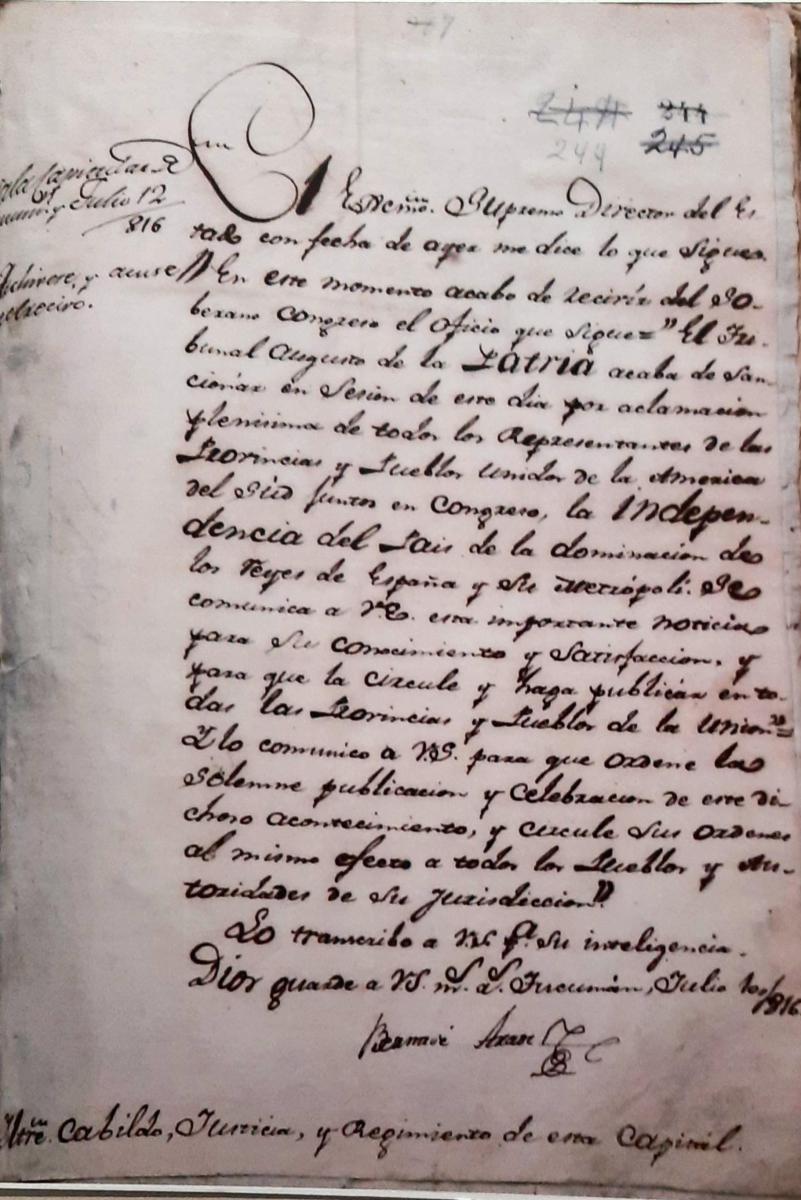 47
244 244
244 245
Sala Capitular
Julio 12
816
Archivese, y acuse
El Excmo. Supremo Director del Es-
tado con fecha de ayer me dice lo que sigue.
"En este momento acabo de recivir del So-
berano Congreso el oficio que sigue=" El Tri-
bunal Augusto de la Patria acaba de San-
cionar en Sesion de este dia por aclamacion
plenisima de todos los Representantes de las
Provincias y Pueblos Unidos de la America
del Sud juntos en Congreso, la Indepen-
dencia del Pais de la dominacion de
los Reyes de España y su Metrópoli. Se
comunica a V.E. esta importante noticia
para su conocimiento y Satisfaccion, y
para que la circule y haga publicar en to-
das las Provincias y Pueblos de la Union"=
Y lo comunico a V.S. para que ordene la
Solemne publicacion y celebracion de este di-
choso acontecimiento, y circule sus ordenes
al mismo efecto a todos los Pueblos y Au-
toridades de su jurisdiccion".
Lo transcribo a V.S. pa. su inteligencia.
Dios guarde a V.S. ms. as. Tucumán, Julio 10/816
Bernave Araoz
Iltre. Cabildo, Justicia, y Regimiento de esta Capital.